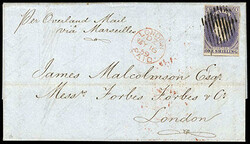 Per Overland Mail
via Marseilles
James Malcolmson Esqr.
Messrs Forbes Forbes & Co
London